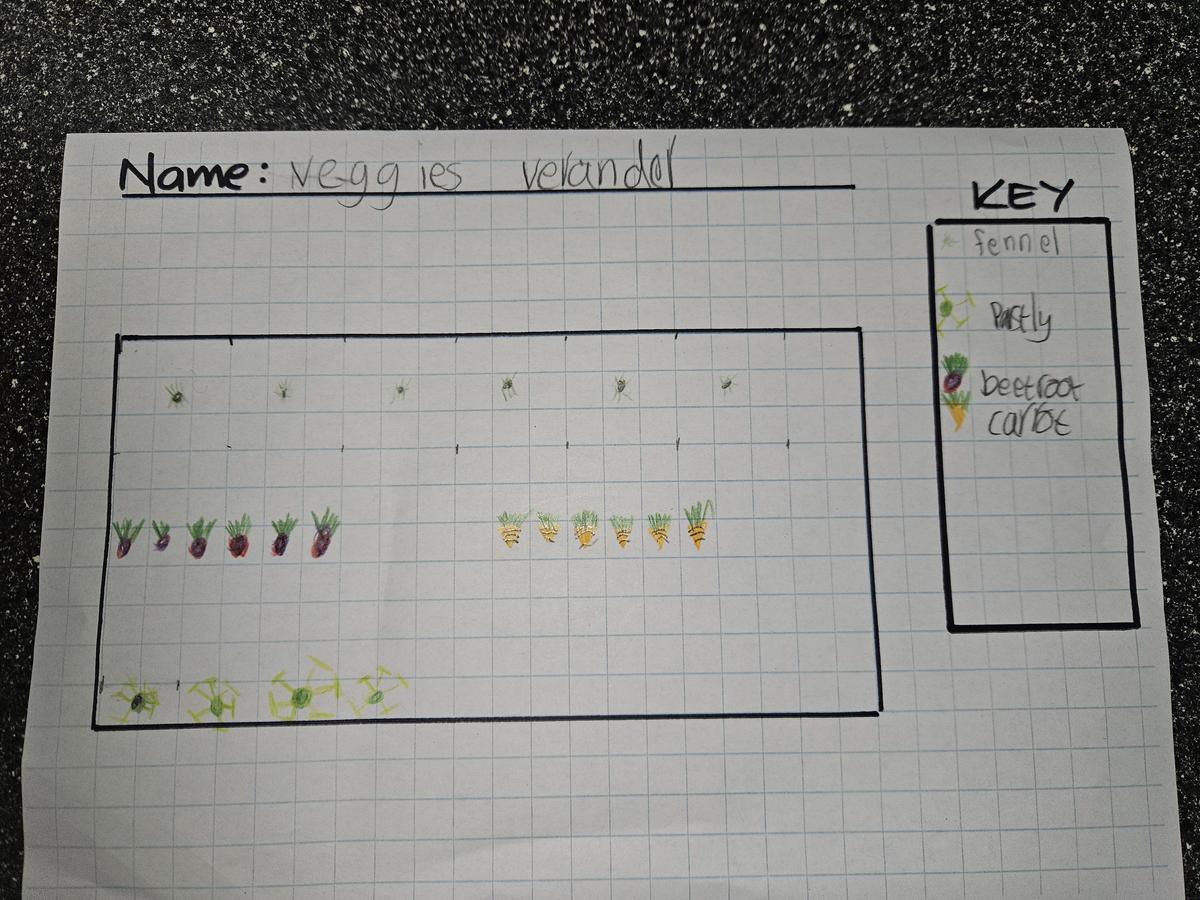 Name: veggies verandel
KEY
fennel
Pastly
beetroot
carrot